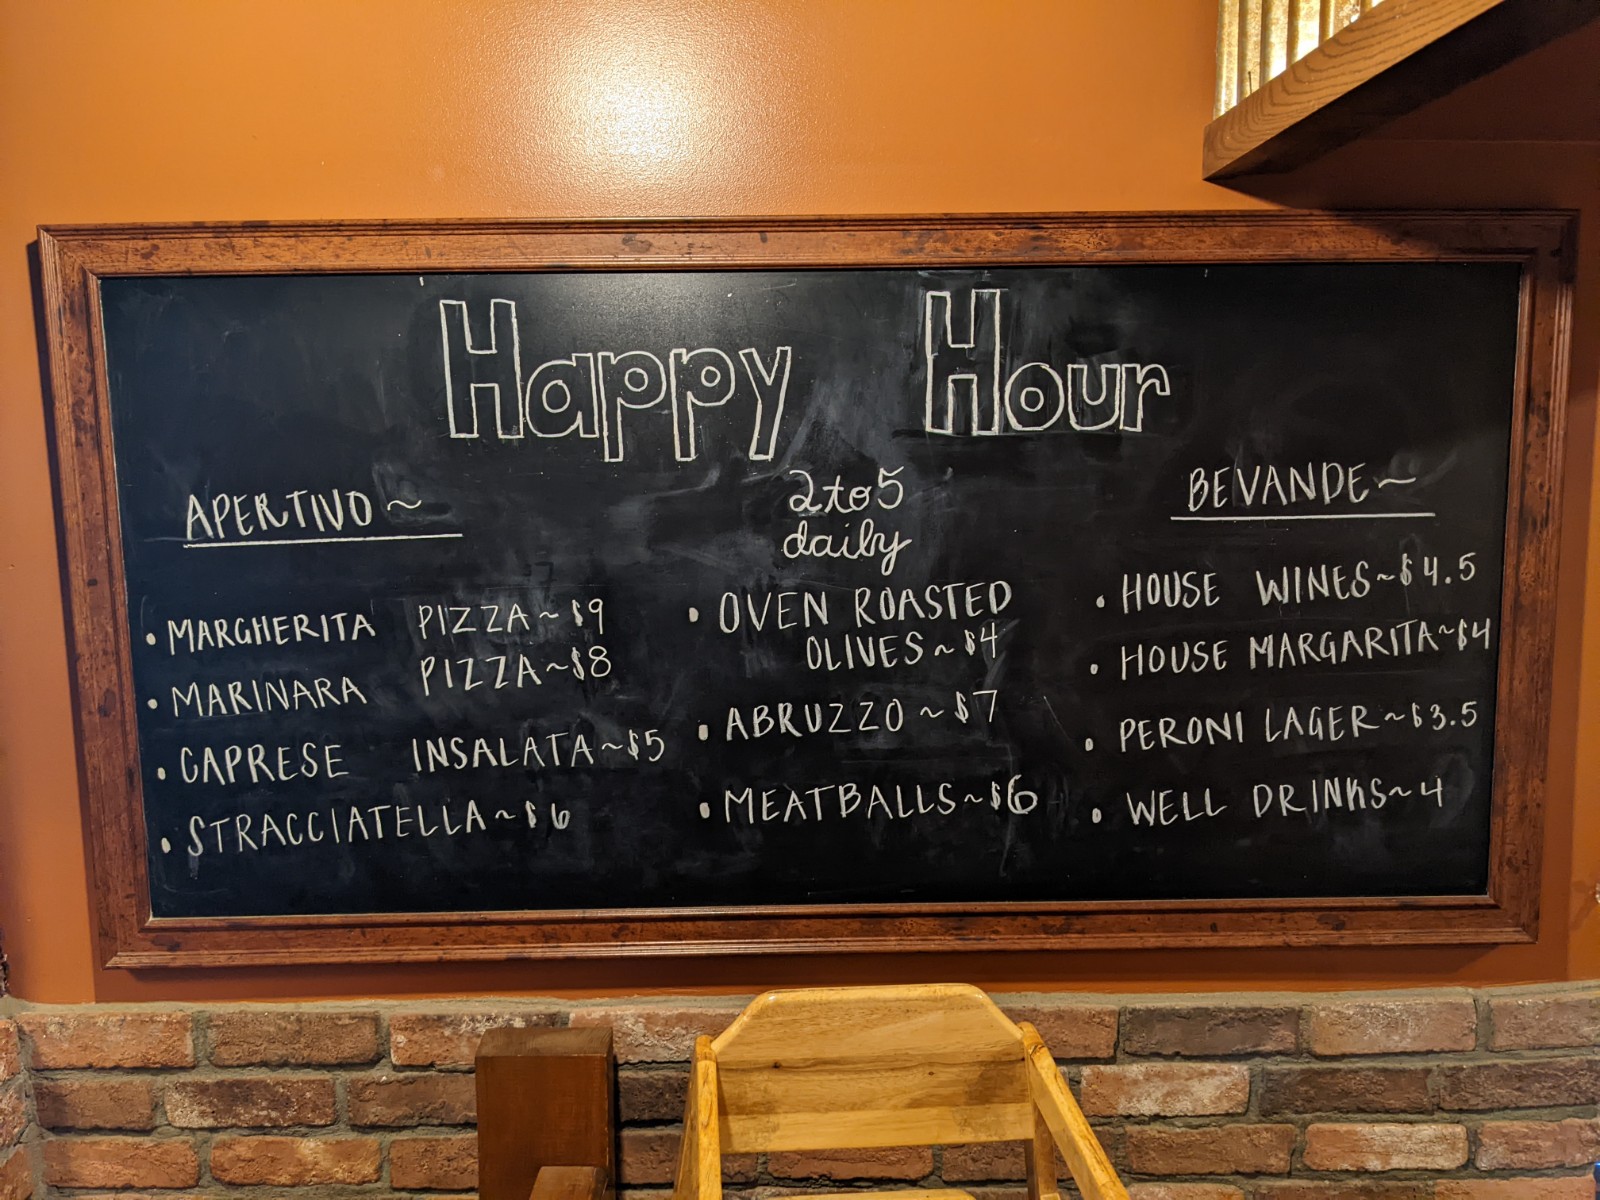 Happy Hour
2 to 5
daily
APERTIVO ~
• MARGHERITA PIZZA ~ $9
• MARINARA PIZZA ~ $8
• CAPRESE INSALATA ~ $5
• STRACCIATELLA ~ $6
• OVEN ROASTED
OLIVES ~ $4
• ABRUZZO ~ $7
• MEATBALLS ~ $6
BEVANDE ~
• HOUSE WINES ~ $4.5
• HOUSE MARGARITA ~ $4
• PERONI LAGER ~ $3.5
• WELL DRINKS ~ 4